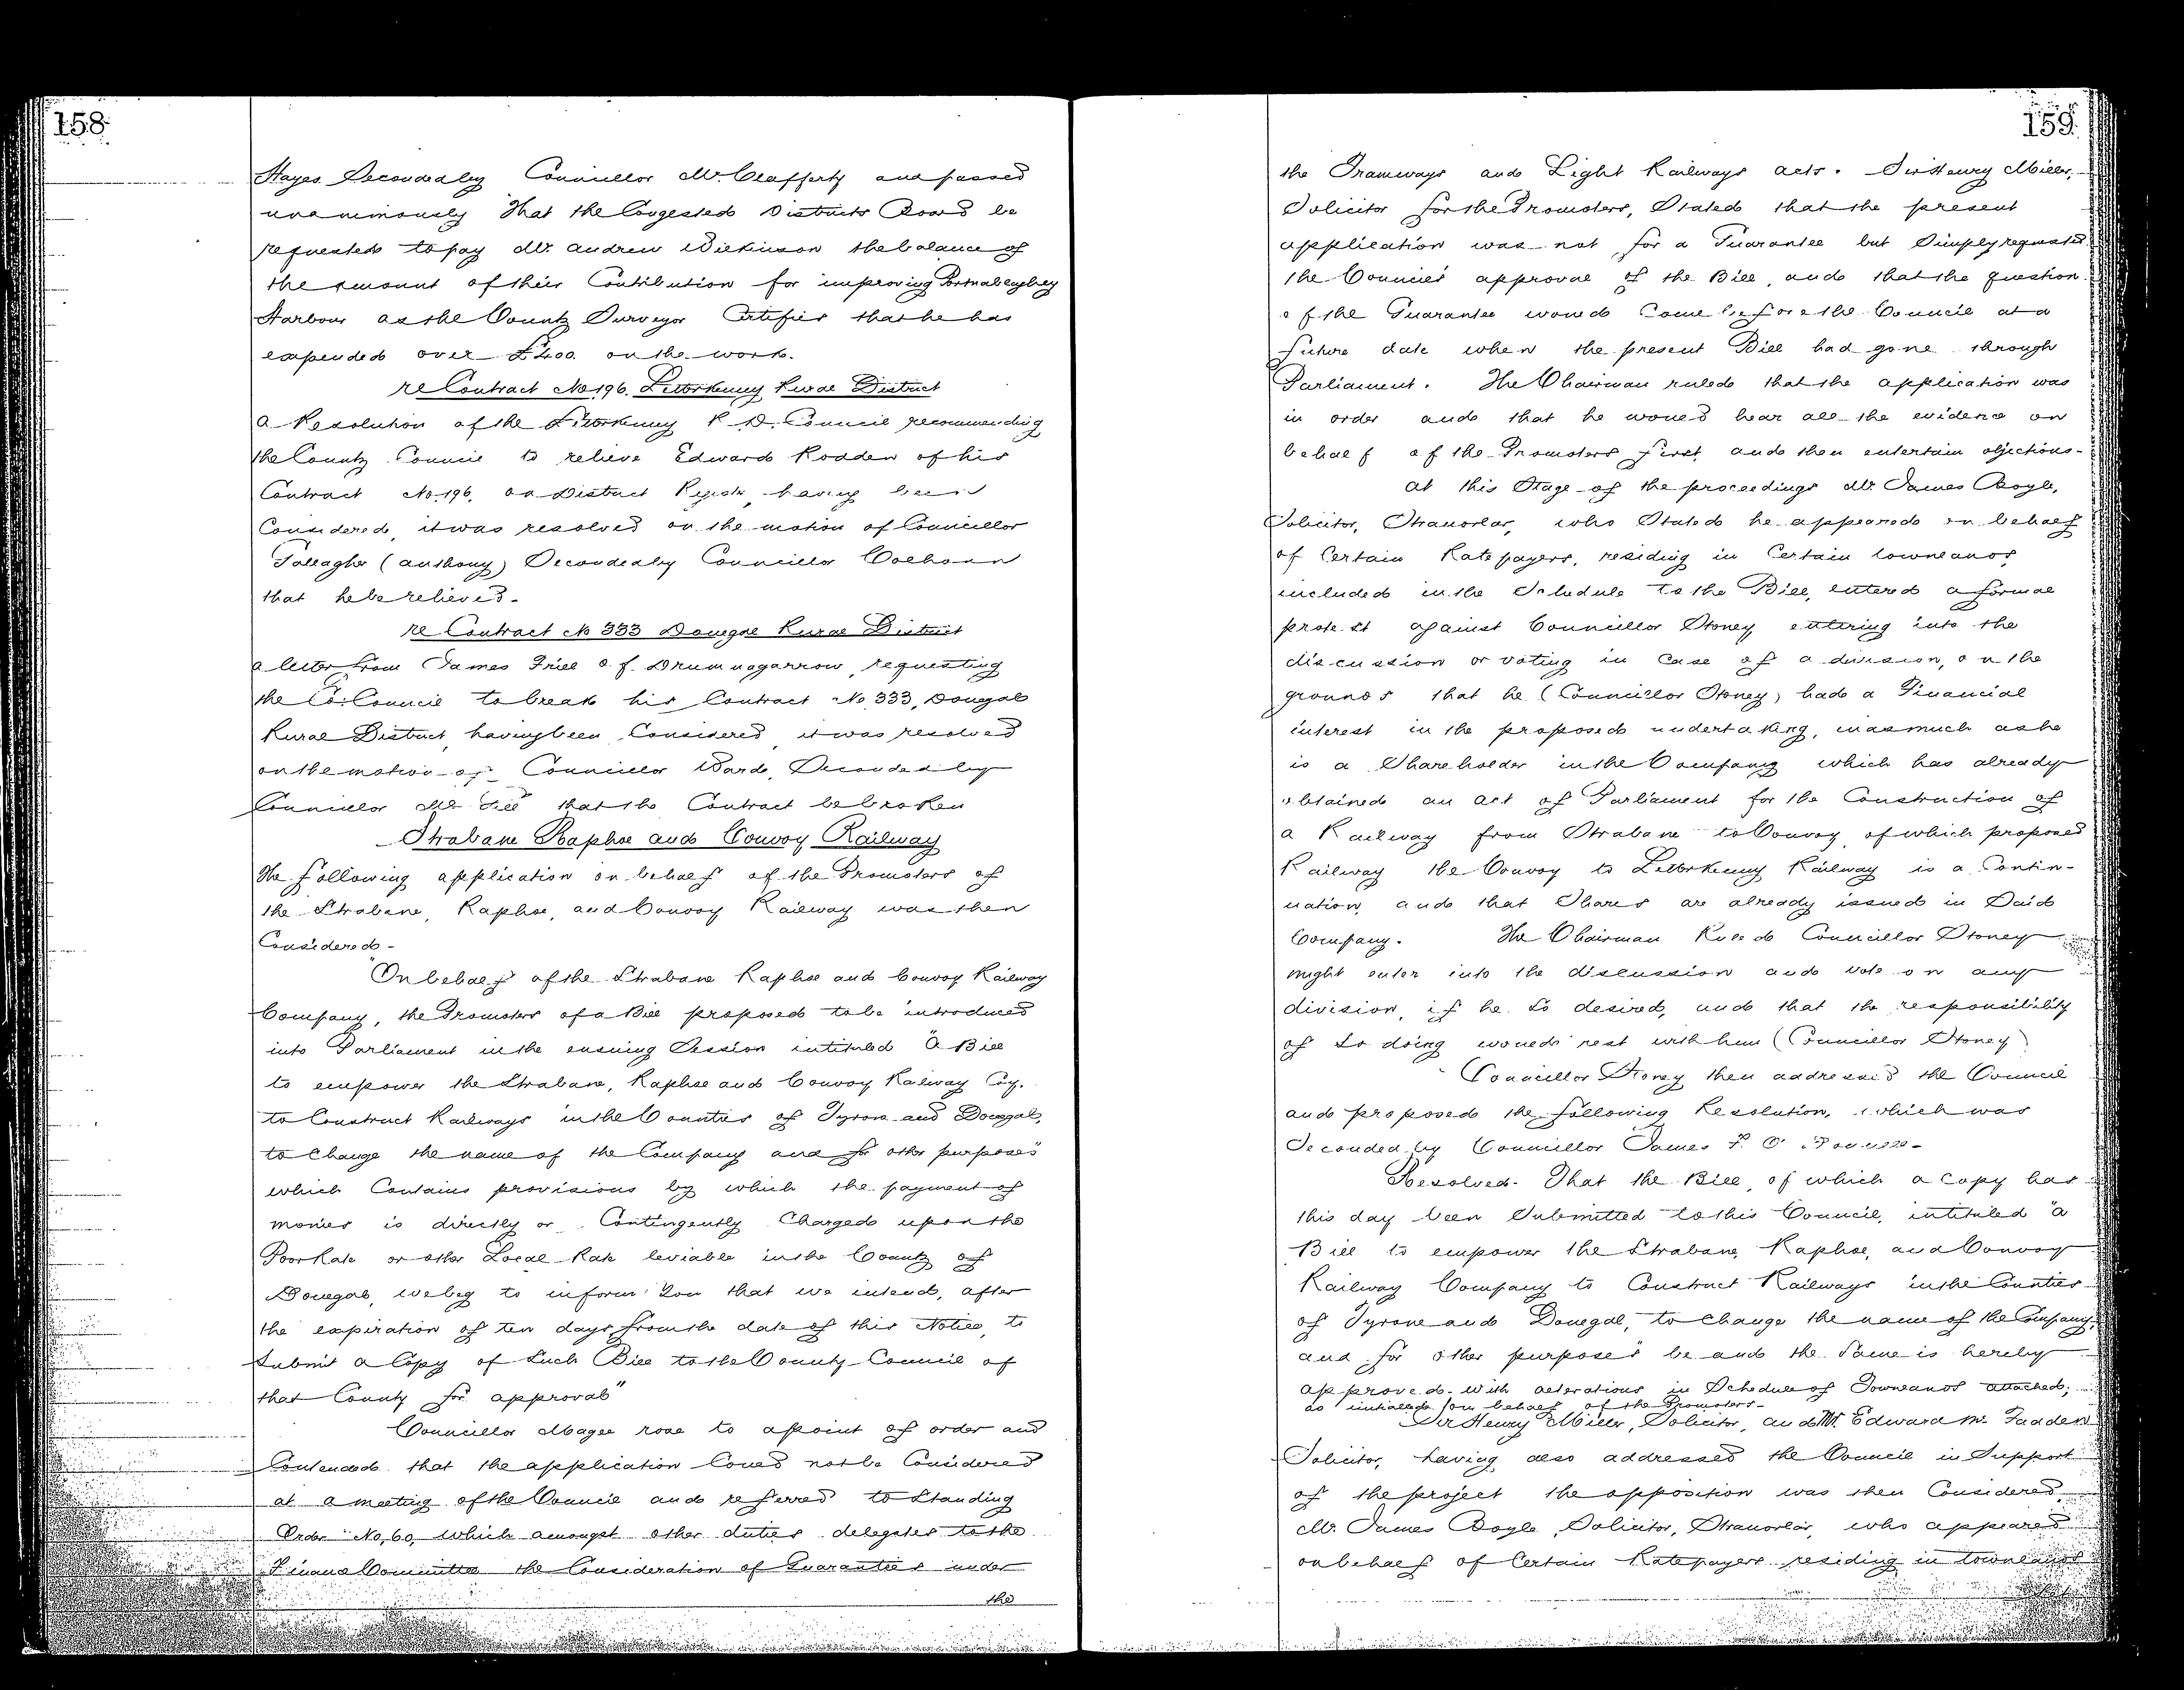 158
Hayes Seconded by Councillor Mc. Clafferty and passed
unanimously That the Congested Districts Board be
requested to pay Mr. Andrew Wilkinson the balance of
the amount of their Contribution for improving Portnablaghey
Harbour as the County Surveyor Certifies that he has
expended over £400 on the work.
re Contract No 196. Letterkenny Rural District
A Resolution of the Letterkenny R. D. Council recommending
the County Council to relieve Edward Rodden of his
Contract No. 196. on District Register having been
Considered, it was resolved on the motion of Councillor
Gallagher (Anthony) Seconded by Councillor Colhoun
that he be relieved.
re Contract No 333 Donegal Rural District
A letter from James Friel of Drumnagarrow, requesting
the Co: Council to break his Contract No. 333, Donegal
Rural District, having been Considered, it was resolved
on the motion of Councillor Ward, Seconded by
Councillor Mc Gill that the Contract be broken
Strabane Raphoe and Convoy Railway
The following application on behalf of the Promoters of
the Strabane, Raphoe, and Convoy Railway was then
Considered -
"On behalf of the Strabane Raphoe and Convoy Railway
Company, the Promoters of a Bill proposed to be introduced
into Parliament in the ensuing Session intituled "A Bill
to empower the Strabane, Raphoe and Convoy Railway Coy.
to Construct Railways in the Counties of Tyrone and Donegal,
to Change the name of the Company and for other purposes"
which Contains provisions by which the payment of
monies is directly or Contingently Charged upon the
Poor Rate or other Local Rate leviable in the County of
Donegal, we beg to inform You that we intend, after
the expiration of ten days from the date of this Notice, to
Submit a Copy of Such Bill to the County Council of
that County for approval"
Councillor Magee rose to a point of order and
Contended that the application Could not be Considered
at a meeting of the Council and referred to Standing
Order No, 60, which amongst other duties delegates to the
Finance Committee the Consideration of Guarantees under
the
159.
the Tramways and Light Railways Acts. Sir Henry Miller,
Solicitor for the Promoters, Stated that the present
application was not for a Guarantee but Simply requested
the Council's approval of the Bill, and that the question
of the Guarantee would Come before the Council at a
future date when the present Bill had gone through
Parliament. The Chairman ruled that the application was
in order and that he would hear all the evidence on
behalf of the Promoters first and then entertain objections.
At this Stage of the proceedings Mr. James Boyle,
Solicitor, Stranorlar, who Stated he appeared on behalf
of Certain Ratepayers, residing in Certain townlands,
included in the Schedule to the Bill, entered a formal
protest against Councillor Stoney entering into the
discussion or voting in Case of a division, on the
grounds that he (Councillor Stoney) had a Financial
interest in the proposed undertaking, inasmuch as he
is a Shareholder in the Company which has already
obtained an Act of Parliament for the Construction of
a Railway from Strabane to Convoy, of which proposed
Railway the Convoy to Letterkenny Railway is a Contin-
uation, and that Shares are already issued in Said
Company. The Chairman Ruled Councillor Stoney
might enter into the discussion and vote on any
division, if he so desired, and that the responsibility
of so doing would rest with him (Councillor Stoney)
Councillor Stoney then addressed the Council
and proposed the following Resolution, which was
Seconded by Councillor James
Resolved. That the Bill, of which a Copy has
this day been Submitted to this Council, intituled "A
Bill to empower the Strabane, Raphoe, and Convoy
Railway Company to Construct Railways in the Counties
of Tyrone and Donegal, to Change the name of the Company,
and for other purposes" be and the Same is hereby
approved - with alterations in Schedule of Townlands attached,
as initialled on behalf of the Promoters -
Sir Henry Miller, Solicitor, and Mr Edward Mc. Fadden
Solicitor, having also addressed the Council in Support
of the project the opposition was then Considered.
Mr. James Boyle, Solicitor, Stranorlar, who appeared
on behalf of Certain Ratepayers residing in townlands